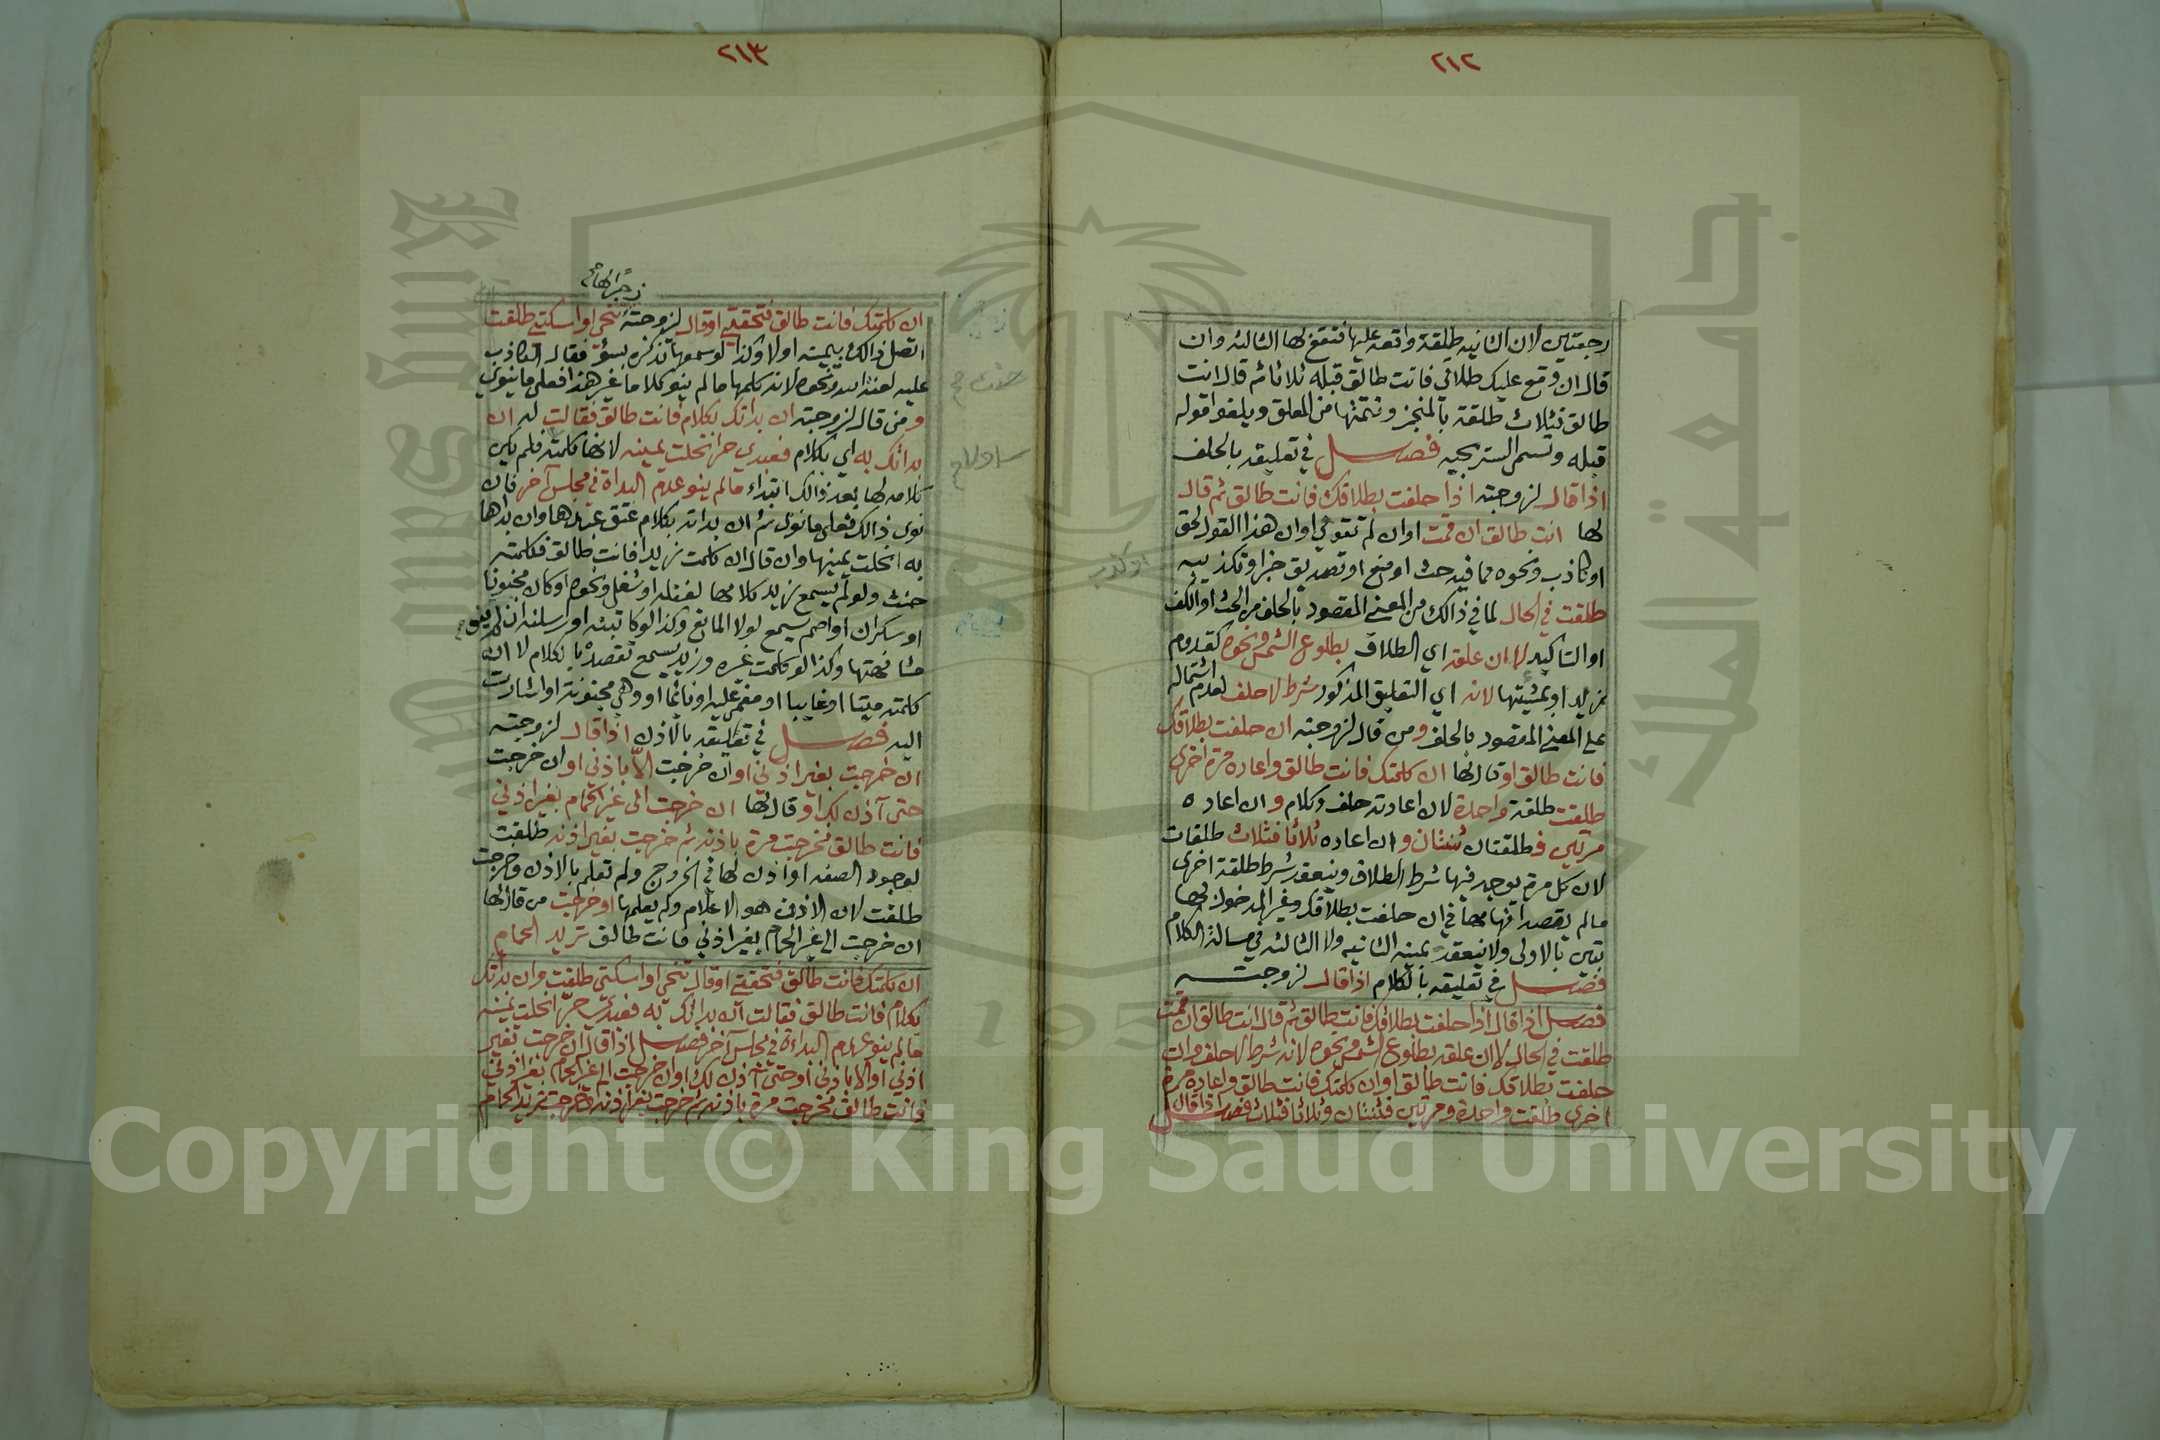 ٢١٢
رجعتين لان الثانيه طلقة واقعه عليها فتقع لها الثالثه وان
قال ان وقع عليك طلاقي فانت طالق قبله ثلاثا ثم قال انت
طالق فثلاث طلقة بالمنجز وتتمتها من المعلق ويلغوا قوله
قبله وتسمى السريجيه فصل في تعليقه بالحلف
اذا قال لزوجته اذا حلفت بطلاقك فانت طالق ثم قال
لها انت طالق ان قمت او ان لم تقومي او ان هذا القول لحق
او كاذب ونحوه مما فيه حث او منع او تصديق خبر او تكذيبه
طلقت في الحال لما في ذالك من المعنى المقصود بالحلف من الحث او الكف
او التاكيد لا ان علقه اي الطلاق بطلوع الشمس ونحوه كقدوم
زيد او بمشيتها لانه اي التعليق المذكور شرط لا حلف لعدم اشتماله
على المعنى المقصود بالحلف ومن قال لزوجته ان حلفت بطلاقك
فانت طالق او قال لها ان كلمتك فانت طالق واعاده مرة اخرى
طلقت طلقة واحدة لان اعادته حلف وكلام وان اعاده
مرتين فطلقتان ثنتان وان اعاده ثلاثا فثلاث طلقات
لان كل مرة يوجد فيها شرط الطلاق وينعقد شرط طلقة اخرى
مالم يقصد افهامها في ان حلفت بطلاقك وغير المدخول بها
تبين بالاولى ولا ينعقد يمينه الثانيه ولا الثالثه في مسالة الكلام
فصل في تعليقه بالكلام اذا قال لزوجته
فصل اذا قال اذا حلفت بطلاقك فانت طالق ثم قال انت طالق ان قمت
طلقت في الحال لا ان علقه بطلوع الشمس ونحوه لانه شرط لا حلف وان
حلفت بطلاقك فانت طالق او ان كلمتك فانت طالق واعاده مرة
اخرى طلقت واحدة ومرتين فثنتان وثلاثا فثلاث فصل اذا قال
٢١٣
زجرا لها
ان كلمتك فانت طالق فتحققي او قال لزوجته تنحي او اسكتي طلقت
اتصل ذالك بيمينه اولا وكذا لو سمعها تذكره بسوء فقال الكاذب
عليه لعنة الله ونحوه لانه كلمها مالم ينو كلاما غير هذا فعلى ما ينوي
ومن قال لزوجته ان بداتك بكلام فانت طالق فقالت له ان
بداتك به اي بكلام فعبدي حر انحلت يمينه لانها كلمته فلم يكن
كلامه لها بعد ذالك ابتداء مالم ينو عدم البداة في مجلس آخر فان
نوى ذالك فعلى ما نوى ثم ان بداته بكلام عتق عبدها وان بداها
به انحلت يمينها وان قال ان كلمت زيدا فانت طالق فكلمته
حنث ولو لم يسمع زيد كلامها لغفله او شغل ونحوه او كان مجنونا
او سكران او اصم يسمع لولا المانع وكذا لو كاتبته او راسلته ان لم ينو
مشافهتها وكذا لو كلمت غيره وزيد يسمع تقصده بالكلام لا ان
كلمته ميتا او غايبا او مغمى عليه او نائما او وهي مجنونة او اشارت
اليه فصل في تعليقه بالاذن اذا قال لزوجته
ان خرجت بغير اذني او ان خرجت الا باذني او ان خرجت
حتى آذن لك او قال لها ان خرجت الى غير الحمام بغير اذني
فانت طالق فخرجت مرة باذنه ثم خرجت بغير اذنه طلقت
لوجود الصفه او اذن لها في الخروج ولم تعلم بالاذن وخرجت
طلقت لان الاذن هو الاعلام ولم يعلمها او خرجت من قال لها
ان خرجت الى غير الحمام بغير اذني فانت طالق تريد الحمام
ان كلمتك فانت طالق فتحققي او قال تنحي او اسكتي طلقت وان بداتك
بكلام فانت طالق فقالت ان بداتك به فعبدي حر انحلت يمينه
مالم ينو عدم البداءة في مجلس آخر فصل اذا قال ان خرجت بغير
اذني او الا باذني او حتى آذن لك او ان خرجت الى غير الحمام بغير اذني
فانت طالق فخرجت مرة باذنه ثم خرجت بغير اذنه او خرجت تريد الحمام
Copyright © King Saud University
جامعة الملك سعود
King Saud University
195